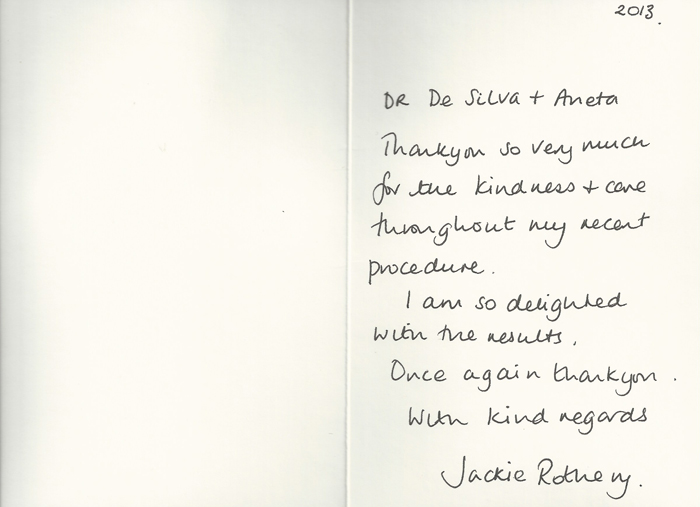 2013.
DR De Silva + Aneta
Thankyou so very much
for the kindness + care
throughout my recent
procedure.
I am so delighted
with the results.
Once again thankyou.
With kind regards
Jackie Rothery.